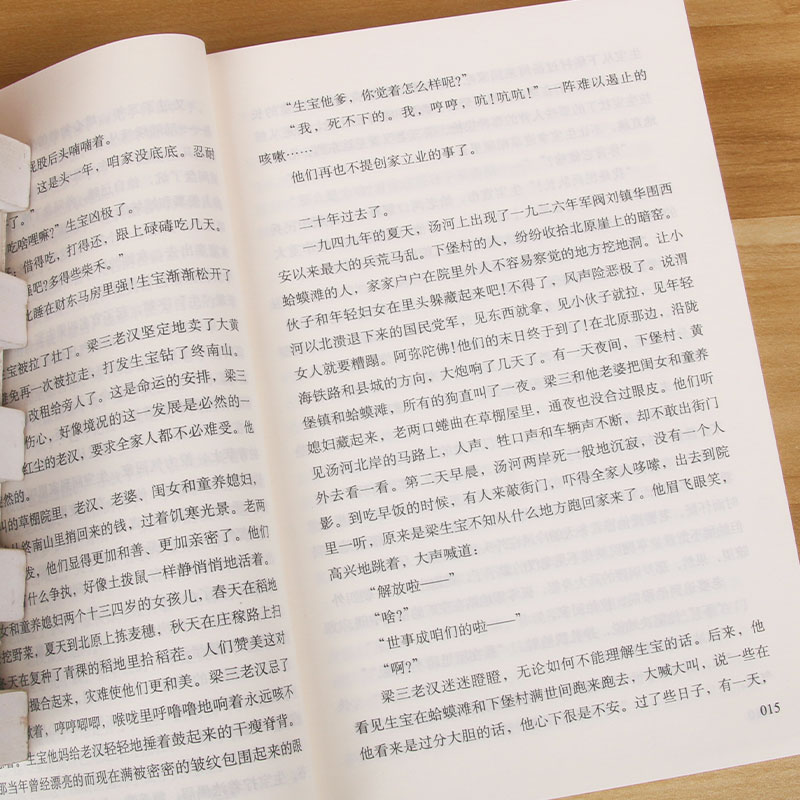 屁股后头喃喃着。
这是头一年，咱家没底底。忍耐
了。”
吃啥哩嘛？”生宝凶极了。
借得吃，打得还，跟上碌碡吃几天。
强吧？多得些柴禾。”
比睡在财东马房里强！生宝渐渐松开了
宝被拉了壮丁。梁三老汉坚定地卖了大黄
避免再一次被拉走，打发生宝钻了终南山。
改租给旁人了。这是命运的安排，梁三
伤心，好像境况的这一发展是必然的一
红尘的老汉，要求全家人都不必难受。他
然的。
的草棚院里，老汉、老婆、闺女和童养媳妇，
终南山里捎回来的钱，过着饥寒光景。老两
发，他们显得更加和善、更加亲密了。他们
什么争执，好像土拨鼠一样静悄悄地活着。
女和童养媳妇两个十三四岁的女孩儿，春天在稻地
挖野菜，夏天到北原上拣麦穗，秋天在庄稼路上扫
冬天在复种了青稞的稻地里拾稻茬。人们赞美这对
撮合起来，灾难使他们更和美。梁三老汉总了
着，哼哼唧唧，喉咙里呼噜噜地响着永远咳不
生宝他妈给老汉轻轻地捶着鼓起来的干瘦脊背。
那当年曾经漂亮的而现在满被密密的皱纹包围起来的眼
“生宝他爹，你觉着怎么样呢？”
“我，死不下的。我，哼哼，吭！吭吭！”一阵难以遏止的
咳嗽……
他们再也不提创家立业的事了。
二十年过去了。
一九四九年的夏天，汤河上出现了一九二六年军阀刘镇华围西
安以来最大的兵荒马乱。下堡村的人，纷纷收拾北原崖上的暗窑。
蛤蟆滩的人，家家户户在院里外人不容易察觉的地方挖地洞。让小
伙子和年轻妇女在里头躲藏起来吧！不得了，风声险恶极了。说渭
河以北溃退下来的国民党军，见东西就拿，见小伙子就拉，见年轻
女人就要糟蹋。阿弥陀佛！他们的末日终于到了！在北原那边，沿陇
海铁路和县城的方向，大炮响了几天了。有一天夜间，下堡村、黄
堡镇和蛤蟆滩，所有的狗直叫了一夜。梁三和他老婆把闺女和童养
媳妇藏起来，老两口蜷曲在草棚屋里，通夜也没合过眼皮。他们听
见汤河北岸的马路上，人声、牲口声和车辆声不断，却不敢出街门
外去看一看。第二天早晨，汤河两岸死一般地沉寂，没有一个人
影。到吃早饭的时候，有人来敲街门，吓得全家人哆嗦，出去到院
里一听，原来是梁生宝不知从什么地方跑回家来了。他眉飞眼笑，
高兴地跳着，大声喊道：
“解放啦——”
“啥？”
“世事成咱们的啦——”
“啊？”
梁三老汉迷迷瞪瞪，无论如何不能理解生宝的话。后来，他
看见生宝在蛤蟆滩和下堡村满世间跑来跑去，大喊大叫，说一些在
他看来是过分大胆的话，他心下很是不安。过了些日子，有一天，
015